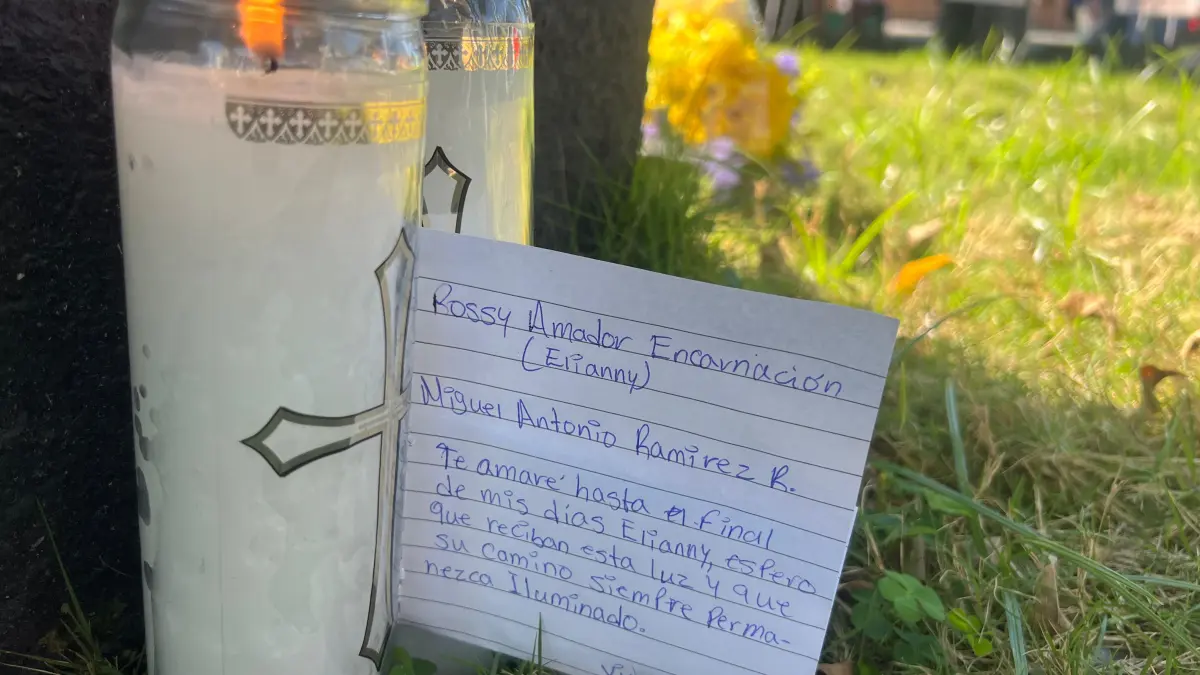 Rossy Amador Encarnación
(Elianny)
Miguel Antonio Ramirez R.
Te amaré hasta el final
de mis días Elianny, espero
que reciban esta luz y que
su camino siempre Perma-
nezca Iluminado.